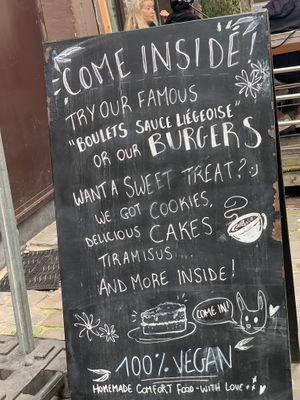 COME INSIDE!
TRY OUR FAMOUS
"BOULETS SAUCE LIÉGEOISE"
OR OUR BURGERS
WANT A SWEET TREAT? :)
WE GOT COOKIES,
DELICIOUS CAKES
TIRAMISUS....
AND MORE INSIDE!
COME IN!
100% VEGAN
HOMEMADE COMFORT FOOD - WITH LOVE